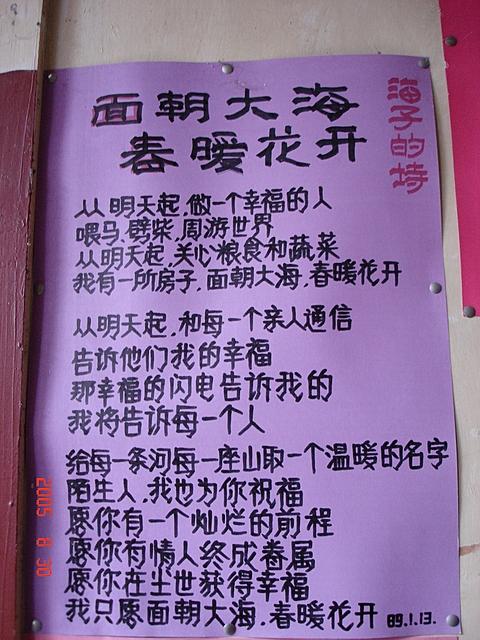 面朝大海
春暖花开
海子的诗
从明天起,做一个幸福的人
喂马,劈柴,周游世界
从明天起,关心粮食和蔬菜
我有一所房子,面朝大海,春暖花开
从明天起,和每一个亲人通信
告诉他们我的幸福
那幸福的闪电告诉我的
我将告诉每一个人
给每一条河每一座山取一个温暖的名字
陌生人,我也为你祝福
愿你有一个灿烂的前程
愿你有情人终成眷属
愿你在尘世获得幸福
我只愿面朝大海,春暖花开 89.1.13.
2005 8 30